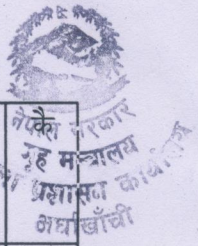 कै
नेपाल सरकार
गृह मन्त्रालय
प्रशासन कार्यालय
अर्घाखाँची